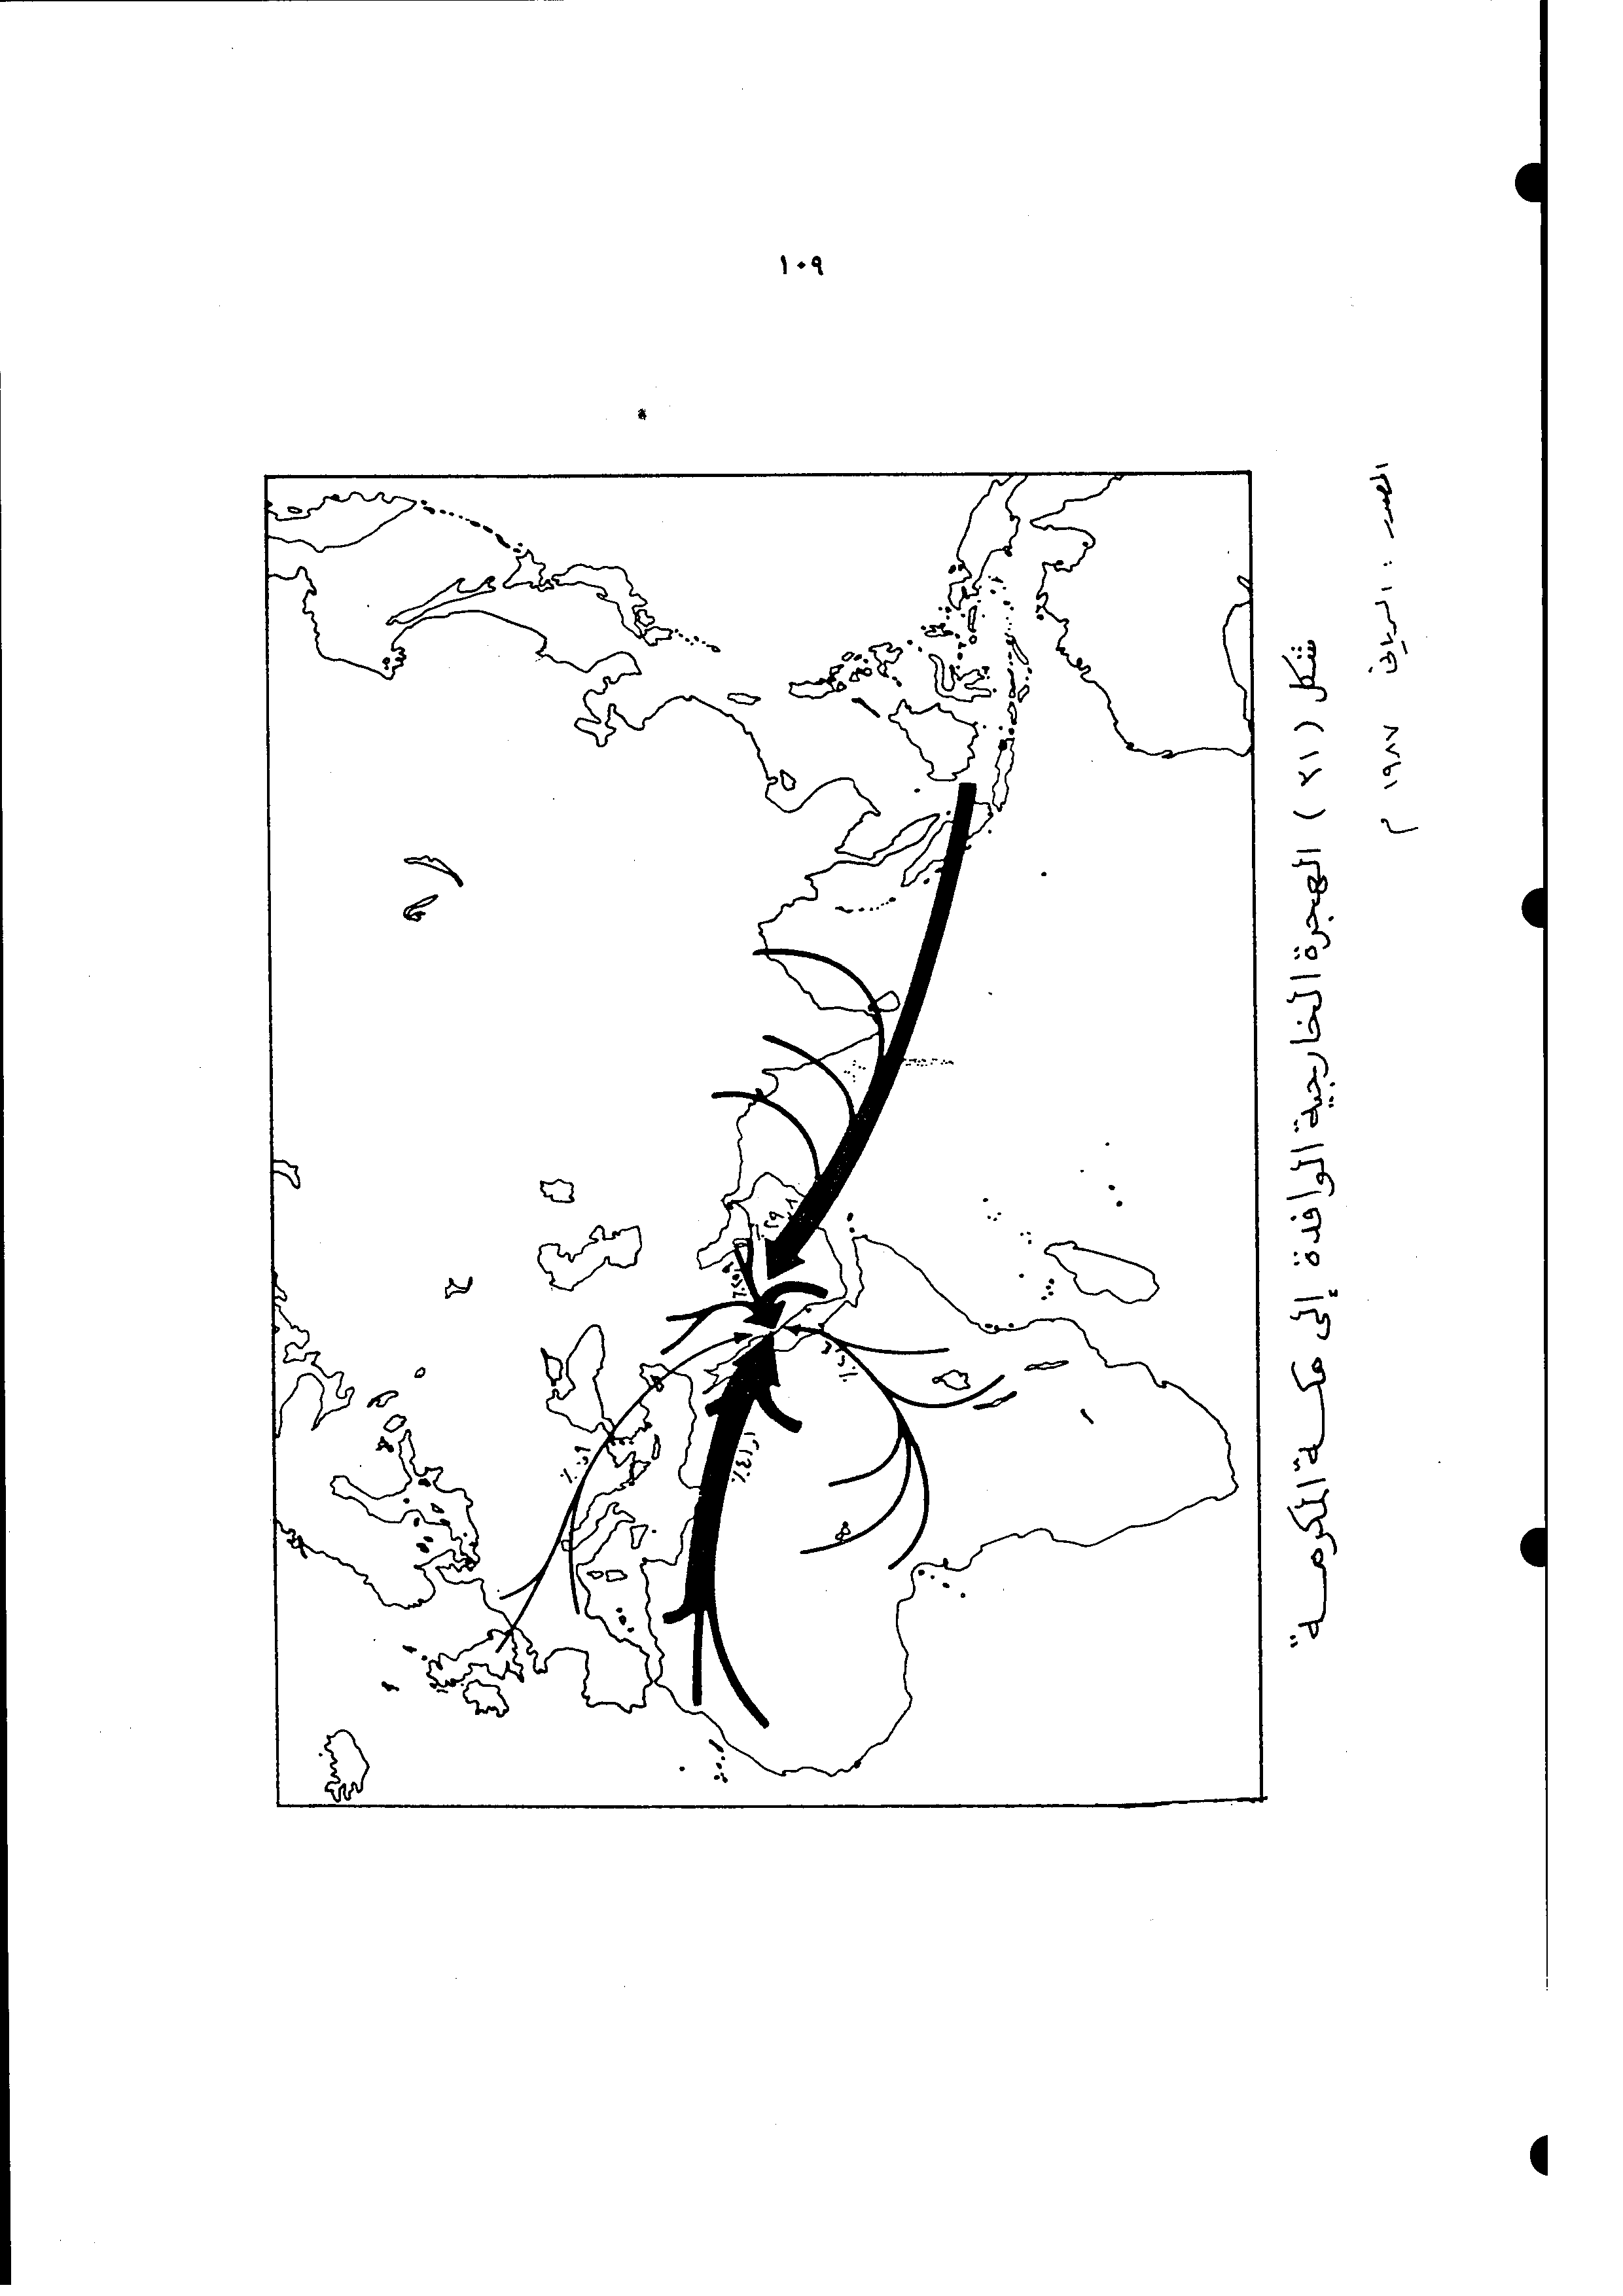 ١٠٩
٢٩٫٨٪
٤١٫١٪
٩٫٪
شكل ( ٢١ ) الهجرة الخارجية الوافدة إلى مكة المكرمة
المصدر : السريانى ١٩٨٧ م